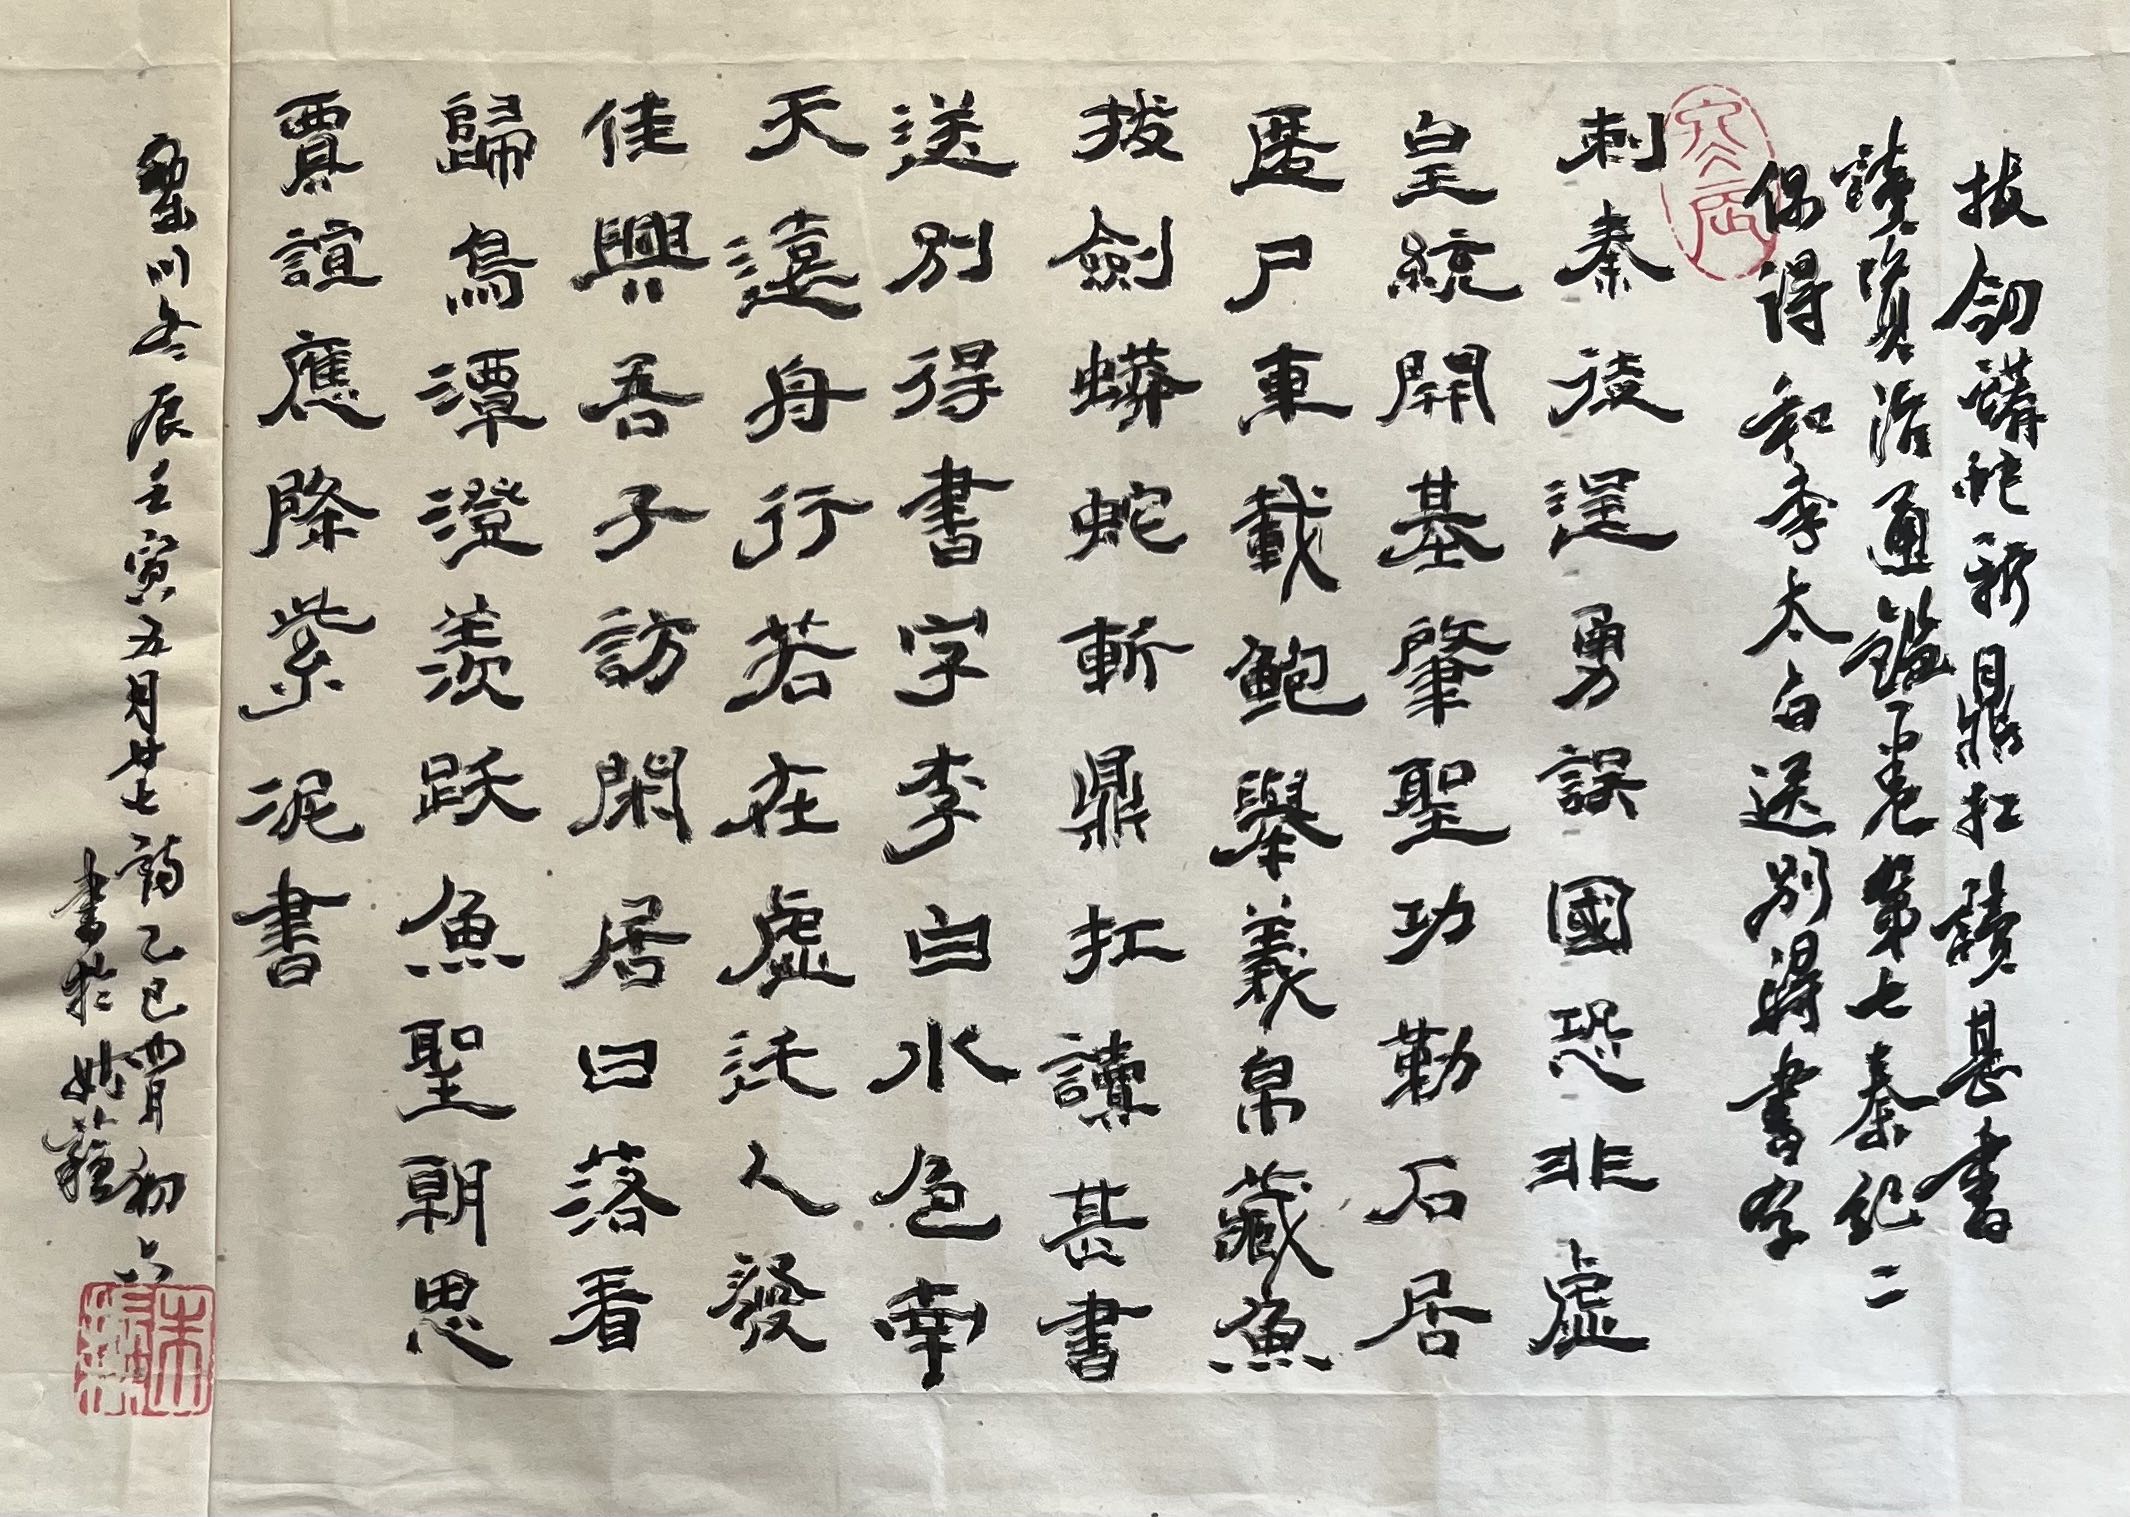 拔劍蟒蛇斬鼎扛讀甚書
讀資治通鑑卷第七秦紀二
偶得和李太白送別得書字
刺秦後逞勇誤國恐非虛
皇統開基肇聖功勒石居
匿尸車載鮑舉義帛藏魚
拔劍蟒蛇斬鼎扛讀甚書
送別得書字李白水色南
天遠舟行若在虛託人發
佳興吾子訪閑居日落看
歸鳥潭澄羨躍魚聖朝思
賈誼應降紫泥書
川冬辰壬寅五月廿七詩乙巳四月初六
書於